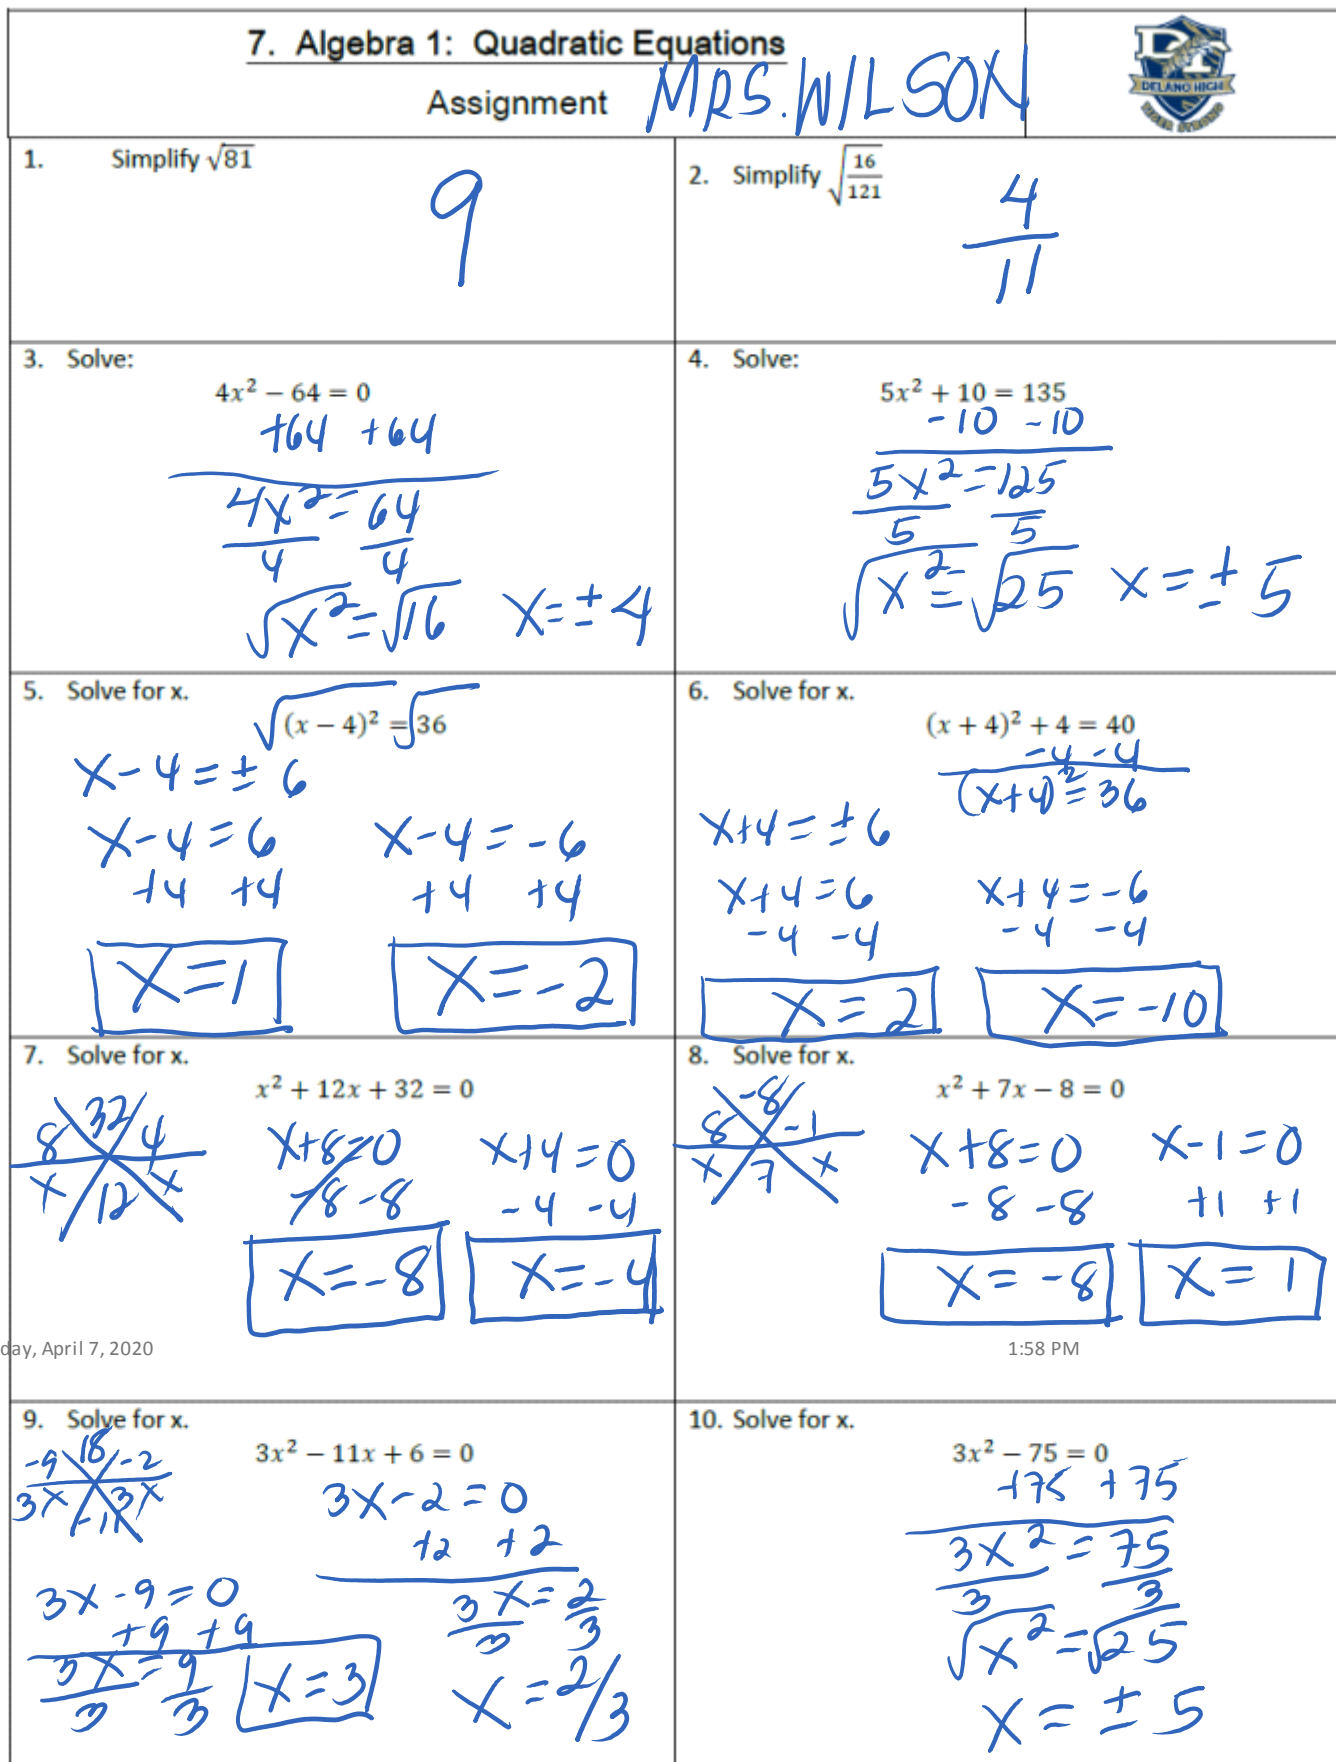 7. Algebra 1: Quadratic Equations
Assignment MRS. WILSON
DELANO HIGH
1. Simplify √81
9
2. Simplify √(16/121)
4/11
3. Solve:
4x² − 64 = 0
+64 +64
4x² = 64
4 4
√x² = √16 x = ± 4
4. Solve:
5x² + 10 = 135
-10 -10
5x² = 125
5 5
√x² = √25 x = ± 5
5. Solve for x.
√(x − 4)² = √36
x - 4 = ± 6
x - 4 = 6 x - 4 = -6
+4 +4 +4 +4
x = 1 x = -2
6. Solve for x.
(x + 4)² + 4 = 40
-4 -4
(x+4)² = 36
x+4 = ± 6
x+4 = 6 x+4 = -6
-4 -4 -4 -4
x = 2 x = -10
7. Solve for x.
x² + 12x + 32 = 0
32
8 4
x 12 x
x+8=0 x+4=0
-8 -8 -4 -4
x = -8 x = -4
8. Solve for x.
x² + 7x − 8 = 0
-8
8 -1
x 7 x
x+8=0 x-1=0
-8 -8 +1 +1
x = -8 x = 1
day, April 7, 2020 1:58 PM
9. Solve for x.
3x² − 11x + 6 = 0
-9 18 -2
3x -11 3x
3x-2=0
+2 +2
3x = 2
3 3
x = 2/3
3x-9=0
+9 +9
3x = 9
3 3
x = 3
10. Solve for x.
3x² − 75 = 0
+75 +75
3x² = 75
3 3
√x² = √25
x = ± 5